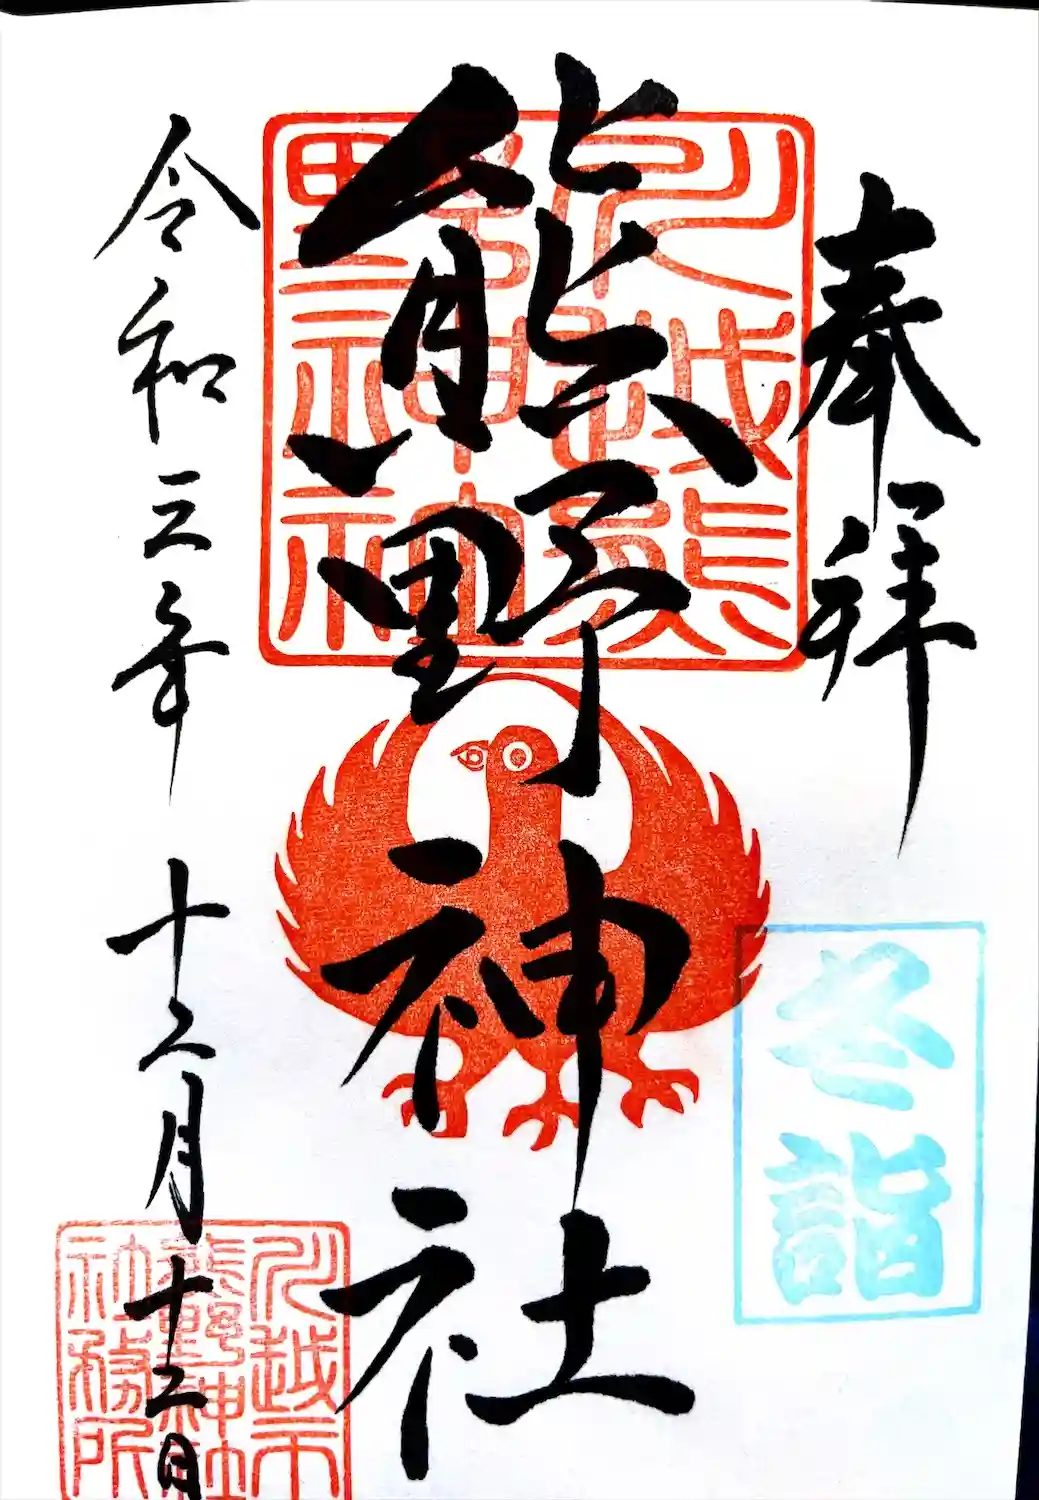 奉拝
冬詣
川越熊
野神社
熊野神社
令和三年 十二月十二日
川越市
熊野神社
社務所